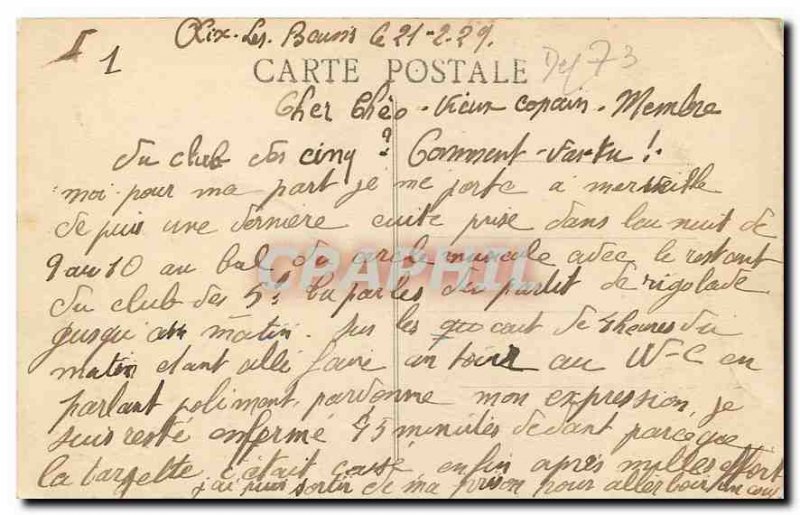 I
1
Aix-Les-Bains le 21-2.29.
Dep 73
CARTE POSTALE
Cher Théo - vieux copain - Membre
du club des cinq ? Comment-vas-tu !.
moi pour ma part je me porte a merveille
depuis une dernière cuite prise dans la nuit de
9 au 10 au bal du cercle musicale avec le restant
du club des 5. tu parles du partit de rigolade
jusqu'au matin. sur les quo cout de 4 heures du
matin etant allé faire un tour au W-C en
parlant poliment, pardonne mon expression, je
suis resté enfermé 95 minutes dedant parceque
la targette c'était cassé, enfin après mylles effort
j'ai puis sortir de ma prison pour aller boire un coup
CPAPHIL